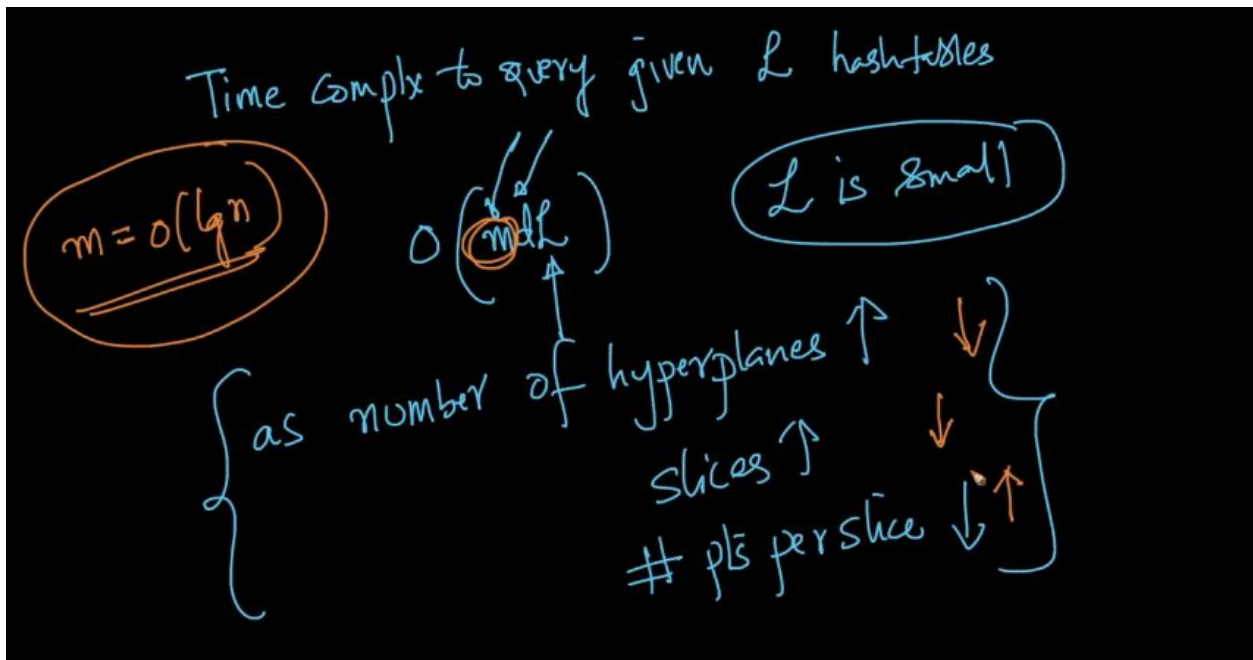 Time complx to query given L hashtables
m = O(lg n)
O(mdL)
L is small
as number of hyperplanes ↑ ↓
slices ↑ ↓
# pts per slice ↓ ↑